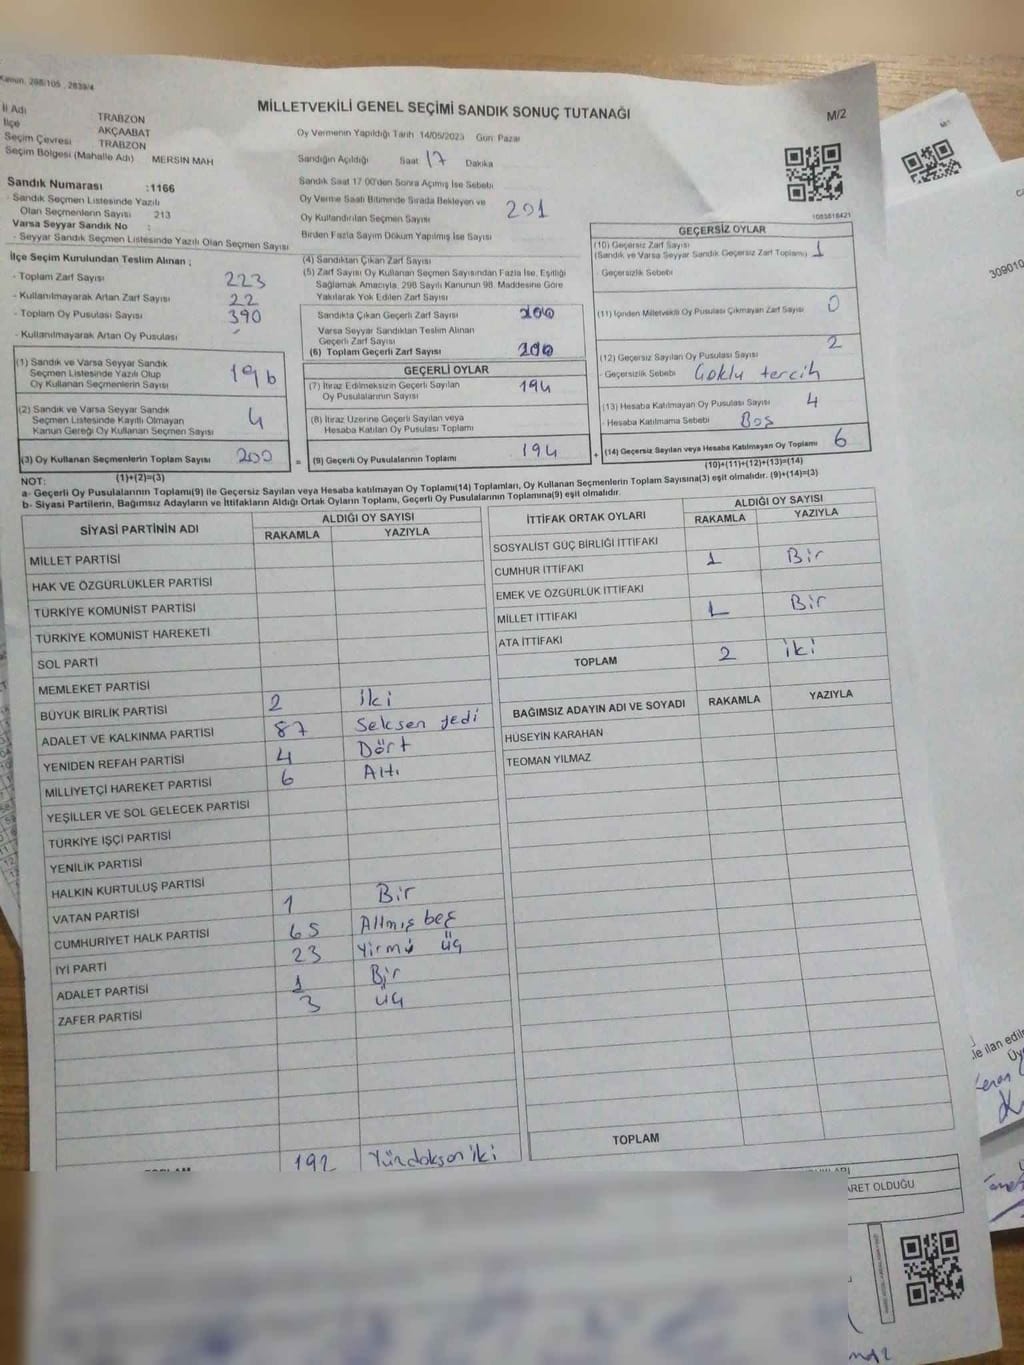 Kanun, 298/105 , 2839/4
MİLLETVEKİLİ GENEL SEÇİMİ SANDIK SONUÇ TUTANAĞI
M/2
İl Adı TRABZON
İlçe AKÇAABAT
Seçim Çevresi TRABZON
Seçim Bölgesi (Mahalle Adı) MERSİN MAH
Sandık Numarası :1166
- Sandık Seçmen Listesinde Yazılı
Olan Seçmenlerin Sayısı 213
Varsa Seyyar Sandık No :
- Seyyar Sandık Seçmen Listesinde Yazılı Olan Seçmen Sayısı
Oy Vermenin Yapıldığı Tarih 14/05/2023 Gün: Pazar
Sandığın Açıldığı Saat 17 Dakika
Sandık Saat 17 00'den Sonra Açılmış İse Sebebi
Oy Verme Saati Bitiminde Sırada Bekleyen ve
Oy Kullandırılan Seçmen Sayısı 201
Birden Fazla Sayım Döküm Yapılmış İse Sayısı
1083618421
İlçe Seçim Kurulundan Teslim Alınan ;
- Toplam Zarf Sayısı 223
- Kullanılmayarak Artan Zarf Sayısı 22
- Toplam Oy Pusulası Sayısı 390
- Kullanılmayarak Artan Oy Pusulası -
(1) Sandık ve Varsa Seyyar Sandık
Seçmen Listesinde Yazılı Olup
Oy Kullanan Seçmenlerin Sayısı 196
(2) Sandık ve Varsa Seyyar Sandık
Seçmen Listesinde Kayıtlı Olmayan
Kanun Gereği Oy Kullanan Seçmen Sayısı 4
(3) Oy Kullanan Seçmenlerin Toplam Sayısı 200
(1)+(2)=(3)
(4) Sandıktan Çıkan Zarf Sayısı
(5) Zarf Sayısı Oy Kullanan Seçmen Sayısından Fazla İse, Eşitliği
Sağlamak Amacıyla, 298 Sayılı Kanunun 98. Maddesine Göre
Yakılarak Yok Edilen Zarf Sayısı
Sandıkta Çıkan Geçerli Zarf Sayısı 200
Varsa Seyyar Sandıktan Teslim Alınan
Geçerli Zarf Sayısı
(6) Toplam Geçerli Zarf Sayısı 200
GEÇERLİ OYLAR
(7) İtiraz Edilmeksizin Geçerli Sayılan
Oy Pusulalarının Sayısı 194
(8) İtiraz Üzerine Geçerli Sayılan veya
Hesaba Katılan Oy Pusulası Toplamı
= (9) Geçerli Oy Pusulalarının Toplamı 194 +
GEÇERSİZ OYLAR
(10) Geçersiz Zarf Sayısı
(Sandık ve Varsa Seyyar Sandık Geçersiz Zarf Toplamı) 1
- Geçersizlik Sebebi
(11) İçinden Milletvekili Oy Pusulası Çıkmayan Zarf Sayısı 0
(12) Geçersiz Sayılan Oy Pusulası Sayısı 2
- Geçersizlik Sebebi Çoklu tercih
(13) Hesaba Katılmayan Oy Pusulası Sayısı 4
- Hesaba Katılmama Sebebi Boş
(14) Geçersiz Sayılan veya Hesaba Katılmayan Oy Toplamı 6
(10)+(11)+(12)+(13)=(14)
NOT:
a- Geçerli Oy Pusulalarının Toplamı(9) ile Geçersiz Sayılan veya Hesaba katılmayan Oy Toplamı(14) Toplamları, Oy Kullanan Seçmenlerin Toplam Sayısına(3) eşit olmalıdır. (9)+(14)=(3)
b- Siyasi Partilerin, Bağımsız Adayların ve İttifakların Aldığı Ortak Oyların Toplamı, Geçerli Oy Pusulalarının Toplamına(9) eşit olmalıdır.
SİYASİ PARTİNİN ADI ALDIĞI OY SAYISI
RAKAMLA YAZIYLA
MİLLET PARTİSİ
HAK VE ÖZGÜRLÜKLER PARTİSİ
TÜRKİYE KOMÜNİST PARTİSİ
TÜRKİYE KOMÜNİST HAREKETİ
SOL PARTİ
MEMLEKET PARTİSİ
BÜYÜK BİRLİK PARTİSİ 2 iki
ADALET VE KALKINMA PARTİSİ 87 Seksen yedi
YENİDEN REFAH PARTİSİ 4 Dört
MİLLİYETÇİ HAREKET PARTİSİ 6 Altı
YEŞİLLER VE SOL GELECEK PARTİSİ
TÜRKİYE İŞÇİ PARTİSİ
YENİLİK PARTİSİ
HALKIN KURTULUŞ PARTİSİ
VATAN PARTİSİ 1 Bir
CUMHURİYET HALK PARTİSİ 65 Altmış beş
İYİ PARTİ 23 Yirmi üç
ADALET PARTİSİ 1 Bir
ZAFER PARTİSİ 3 üç
TOPLAM 192 Yüzdoksan iki
İTTİFAK ORTAK OYLARI ALDIĞI OY SAYISI
RAKAMLA YAZIYLA
SOSYALİST GÜÇ BİRLİĞİ İTTİFAKI
CUMHUR İTTİFAKI 1 Bir
EMEK VE ÖZGÜRLÜK İTTİFAKI
MİLLET İTTİFAKI 1 Bir
ATA İTTİFAKI
TOPLAM 2 iki
BAĞIMSIZ ADAYIN ADI VE SOYADI RAKAMLA YAZIYLA
HÜSEYİN KARAHAN
TEOMAN YILMAZ
TOPLAM
ARET OLDUĞU
309010
le ilan edil
Üy